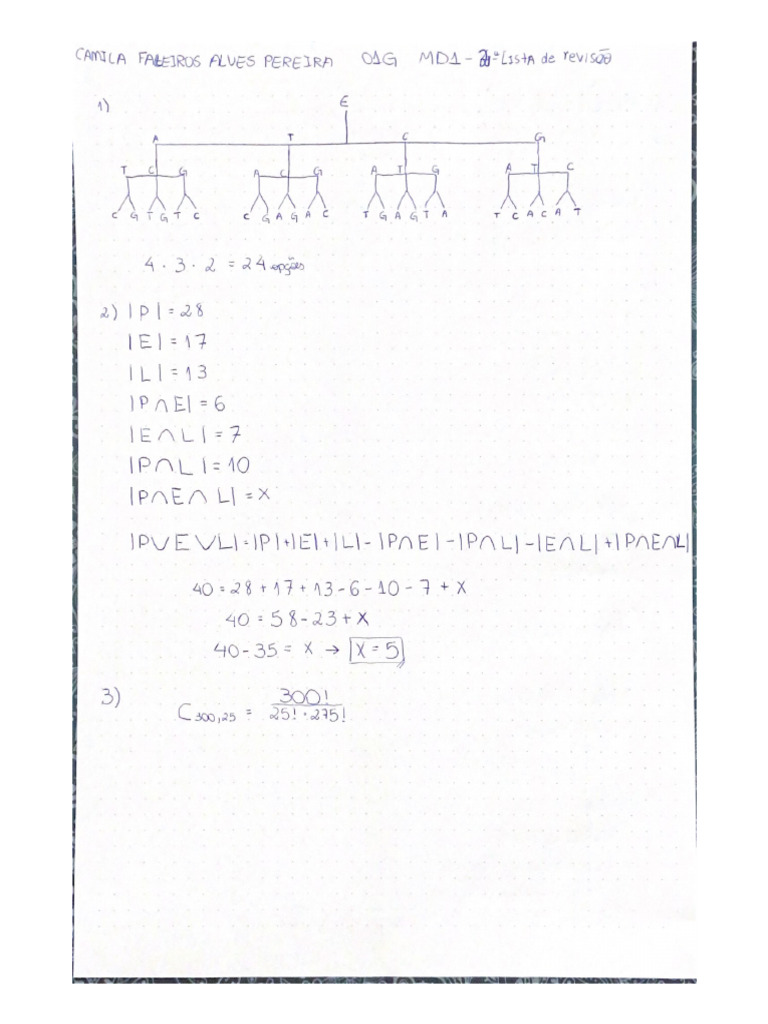 CAMILA FALEIROS ALVES PEREIRA 01G MD1 - 2ª Lista de revisão
1)
E
A T C G
T C G A C G A T G A T C
C G T G T C C G A G A C T G A G T A T C A C A T
4 . 3 . 2 = 24 opções
2) |P| = 28
|E| = 17
|L| = 13
|P∩E| = 6
|E∩L| = 7
|P∩L| = 10
|P∩E∩L| = X
|P∪E∪L| = |P|+|E|+|L| - |P∩E| - |P∩L| - |E∩L| + |P∩E∩L|
40 = 28 + 17 + 13 - 6 - 10 - 7 + X
40 = 58 - 23 + X
40 - 35 = X → X = 5
3) C300,25 = 300! / 25! . 275!